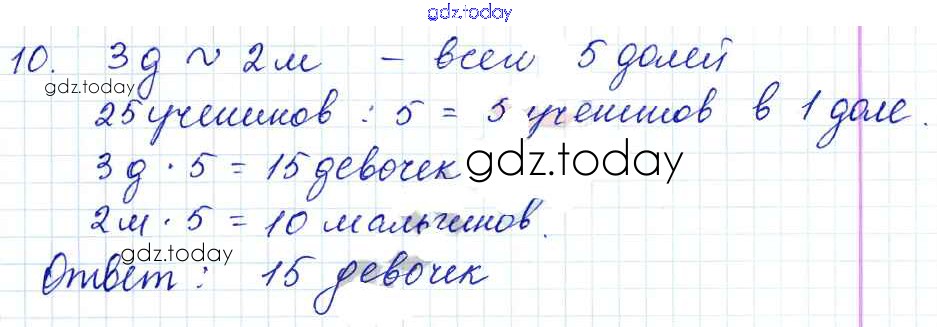 gdz.today
10. 3д ~ 2м - всем 5 долей
gdz.today
25 учеников : 5 = 5 учеников в 1 доле.
3д · 5 = 15 девочек gdz.today
2м · 5 = 10 мальчиков.
gdz.today
Ответ: 15 девочек